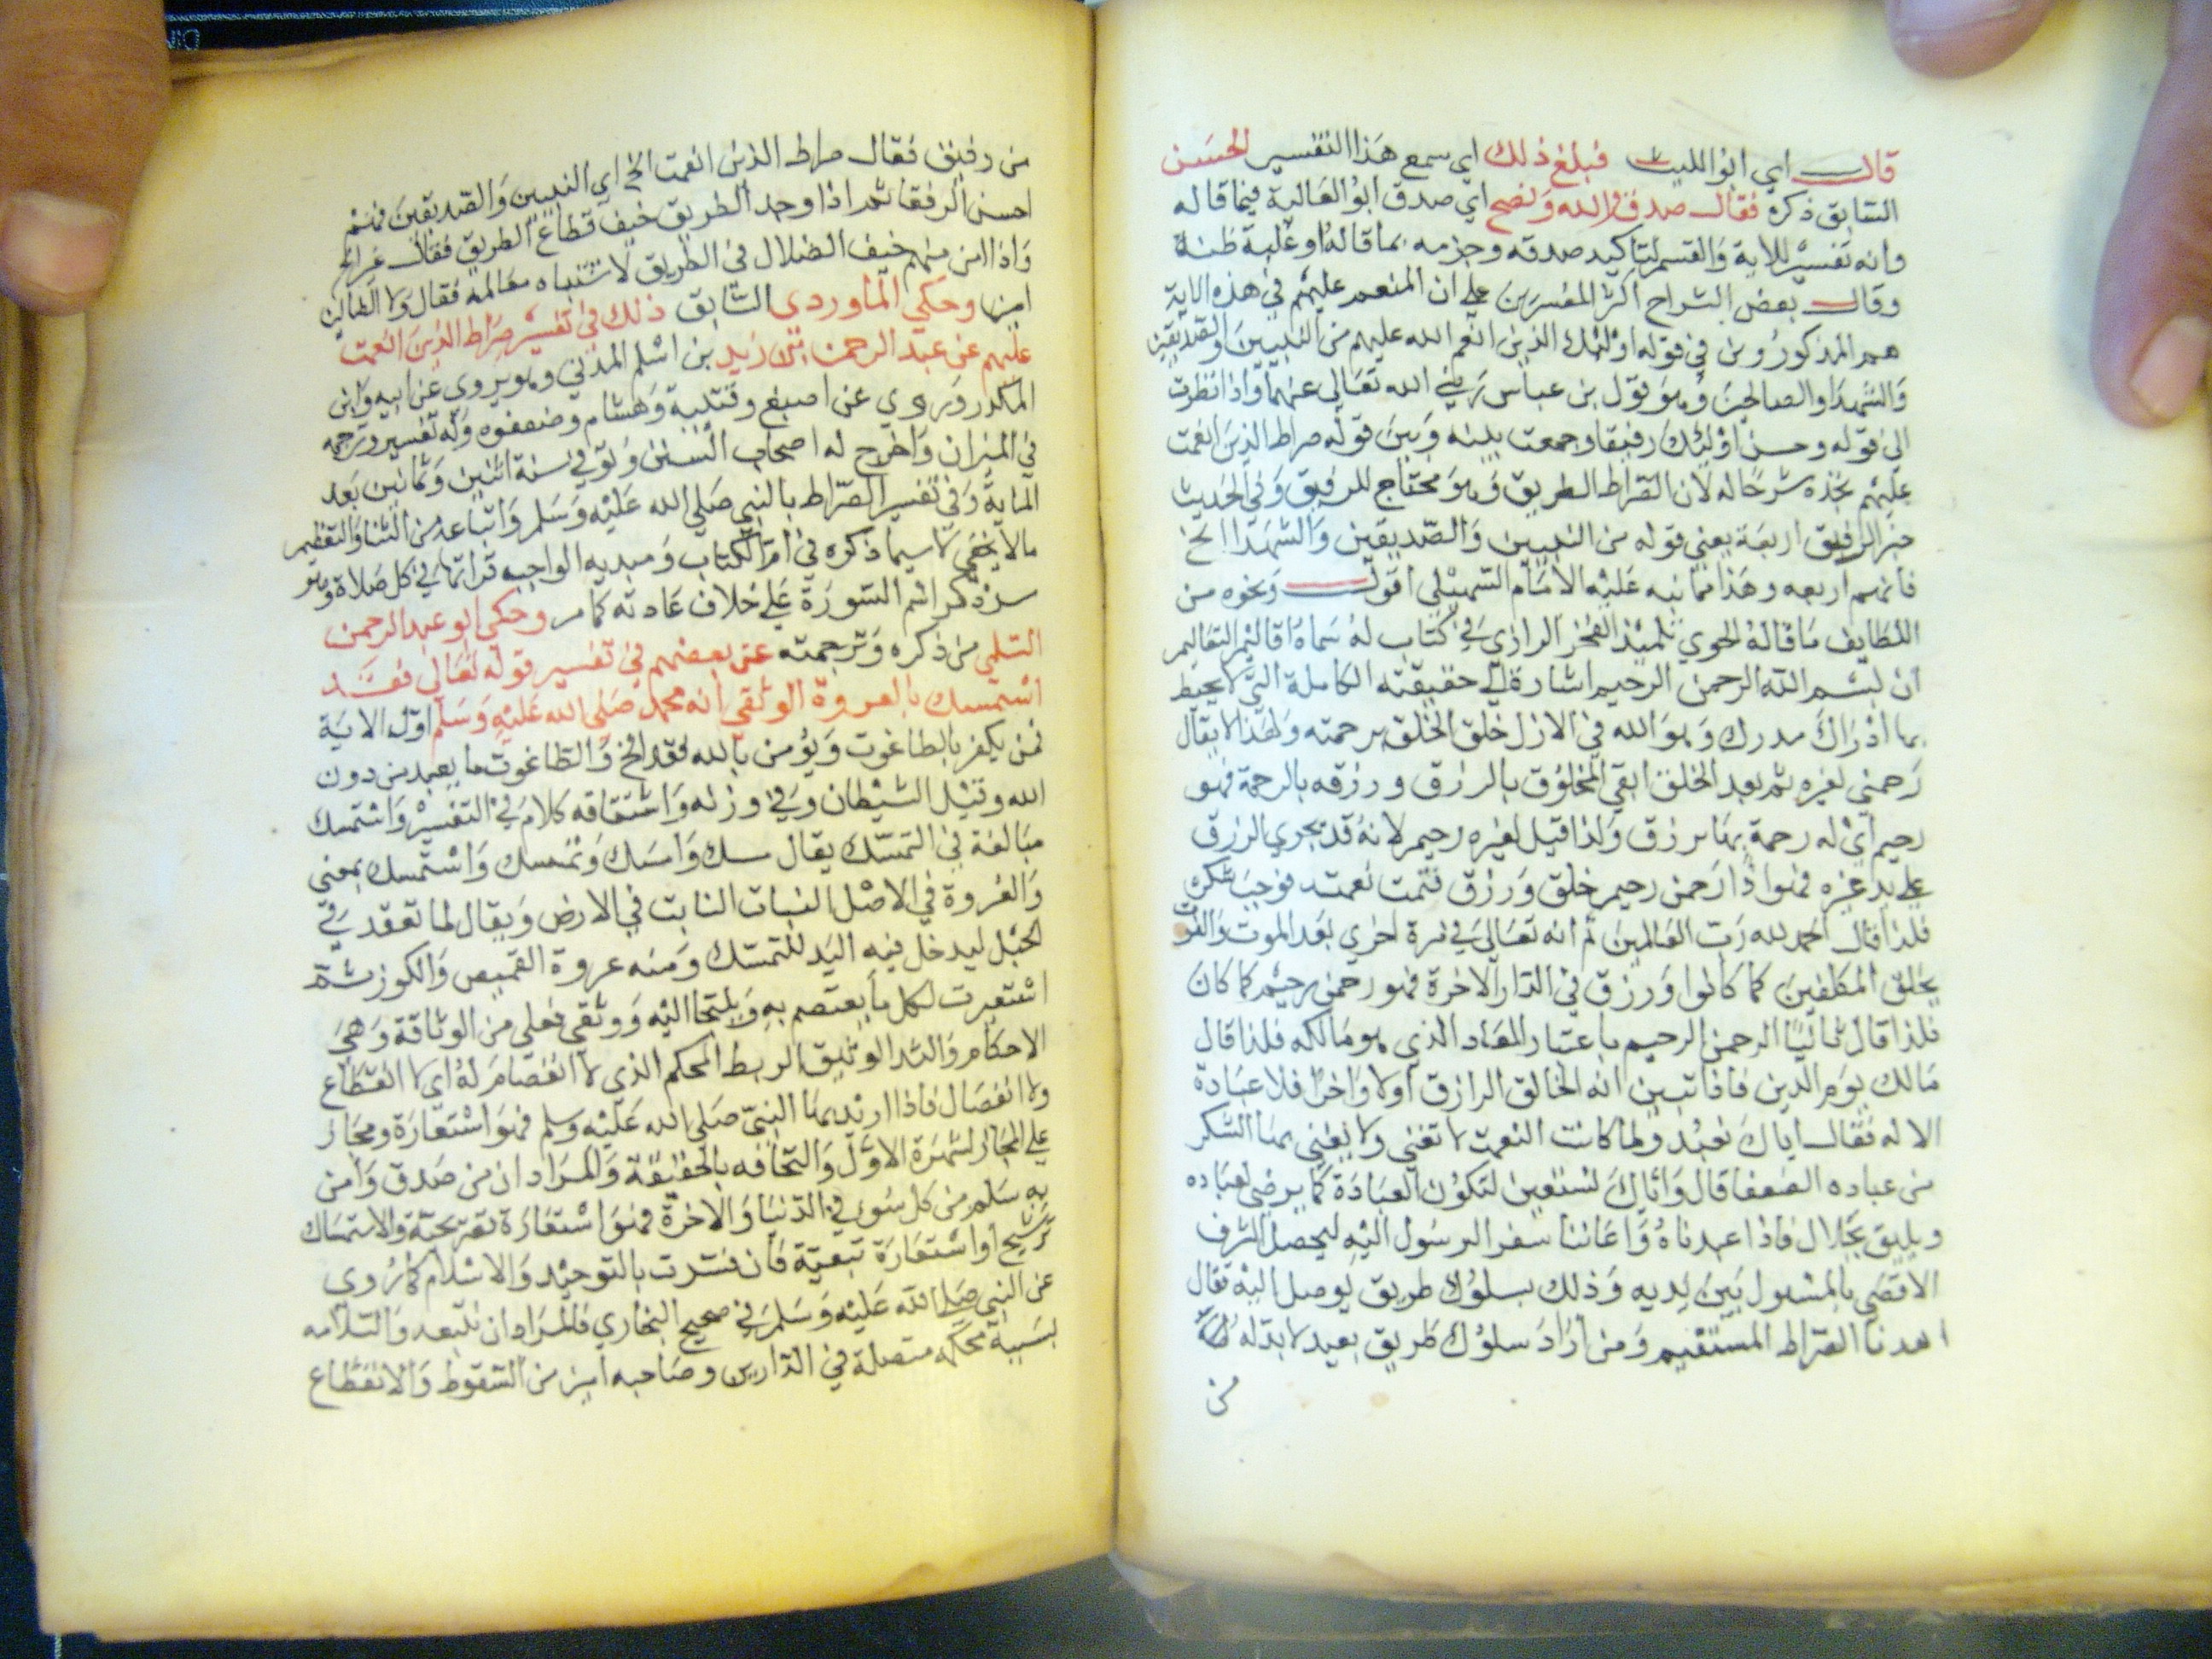 قال اي ابو الليث فبلغ ذلك اي سمع هذا التفسير الحسن
السابق ذكره فقال صدق والله ونصح اي صدق ابو العالية فيما قاله
وانه تفسير للاية والقسم لتاكيد صدقه وجزمه بما قاله او غلبة ظنه
وقال بعض الشراح اكثر المفسرين على ان المنعم عليهم في هذه الاية
هم المذكورون في قوله اولئك الذين انعم الله عليهم من النبيين والصديقين
والشهدا والصالحين وهو قول بن عباس رضي الله تعالى عنهما واذا نظرت
الى قوله وحسن اولئك رفيقا وجمعت بينه وبين قوله صراط الذين انعمت
عليهم تجده شرحا له لان الصراط الطريق وهو محتاج للرفيق وفي الحديث
خير الرفيق اربعة يعني قوله من النبيين والصديقين والشهدا الخ
فانهم اربعه وهذا مما نبه عليه الامام السهيلي اقول ونحوه من
اللطايف ما قاله الخوي تلميذ الفخر الرازي في كتاب له سماه اقاليم التعاليم
ان بسم الله الرحمن الرحيم اشارة الى حقيقته الكاملة التي لا يحيط
بها ادراك مدرك وهو الله في الازل خلق الخلق برحمته ولهذا لا يقال
رحمن لغيره ثم بعد الخلق ابقى المخلوق بالرزق ورزقه بالرحمة فهو
رحيم اي له رحمة بها يرزق ولذا قيل لغيره رحيم لانه قد يجري الرزق
على يد غيره فهو اذا رحمن رحيم خلق ورزق فتمت نعمته فوجب شكره
فلذا قال الحمد لله رب العالمين ثم انه تعالى في مرة اخرى بعد الموت
يخلق المكلفين كما كانوا ورزق في الدار الاخرة فهو رحمن رحيم كما كان
فلذا قال ثانيا الرحمن الرحيم باعتبار المعاد الذي هو مالكه فلذا قال
مالك يوم الدين فاذا تبين انه الخالق الرازق اولا واخرا فلا عبادة
الا له فقال اياك نعبد ولما كانت النعمت لا تفنى ولا يفي بها الشكر
من عباده الضعفا قال واياك نستعين لتكون العبادة كما يرضى لعباده
ويليق بجلال فاذا عبدناه واعاننا سفر الرسول اليه ليحصل الشرف
الاقصى بالمثول بين يديه وذلك بسلوك طريق يوصل اليه فقال
اهدنا الصراط المستقيم ومن اراد سلوك طريق بعيد لا بد له
من
من رفيق فقال صراط الذين انعمت الخ اي النبيين والصديقين فهم
احسن الرفقا ثم اذا وجد الطريق خيف قطاع الطريق فقال غير الخ
واذا امن منهم خيف الضلال في الطريق لاشتباه معالمه فقال ولا الضالين
امنا وحكي الماوردي السابق ذلك في تفسير صراط الذين انعمت
عليهم عن عبد الرحمن بن زيد بن اسلم المدني وهو يروي عن ابيه وابن
المنكدر ويروي عن اصبغ وقتيبة وهشام وضعفوه وله تفسير وترجمه
في الميزان واخرج له اصحاب السنن وتوفي في سنة اثنين وثمانين بعد
الماية وفي تفسير الصراط بالنبي صلي الله عليه وسلم واتباعه من الثنا والتعظيم
مالا يخفي لا سيما ذكره في ام الكتاب ومبديه الواجب قراتها في كل صلاة وهو
سر ذكر اسم السورة علي خلاف عادته كما مر وحكي ابو عبد الرحمن
السلمي من ذكره وترجمته عن بعضهم في تفسير قوله تعالى فقد
استمسك بالعروة الوثقي انه محمد صلي الله عليه وسلم اول الاية
فمن يكفر بالطاغوت ويؤمن بالله فقد الخ والطاغوت ما يعبد من دون
الله وقيل الشيطان وفي وزنه واشتقاقه كلام في التفسير واستمسك
مبالغة في التمسك يقال مسك وامسك وتمسك واستمسك بمعني
والعروة في الاصل النبات النابت في الارض ويقال لما تعقد في
الحبل ليدخل فيه اليد للتمسك ومنه عروة القميص والكوز ثم
استعيرت لكل ما يعتصم به ويلتجا اليه ووثقي فعلي من الوثاقة وهي
الاحكام والشد الوثيق الربط المحكم الذي لا انفصام له اي لا انقطاع
ولا انفصال فاذا اريد بها النبي صلي الله عليه وسلم فهو استعارة ومجاز
علي المجاز لشهرة الاول والتحاقه بالحقيقة والمراد ان من صدق وامن
به سلم من كل سوء في الدنيا والاخرة فهو استعارة تصريحية والاستمساك
ترشيح او استعارة تبعية فان فسرت بالتوحيد والاسلام كما روي
عن النبي صلي الله عليه وسلم في صحيح البخاري فالمراد ان تلبعه والتلامه
بسببية محكمه متصلة في الدارين وصاحبه امن من السقوط والانقطاع